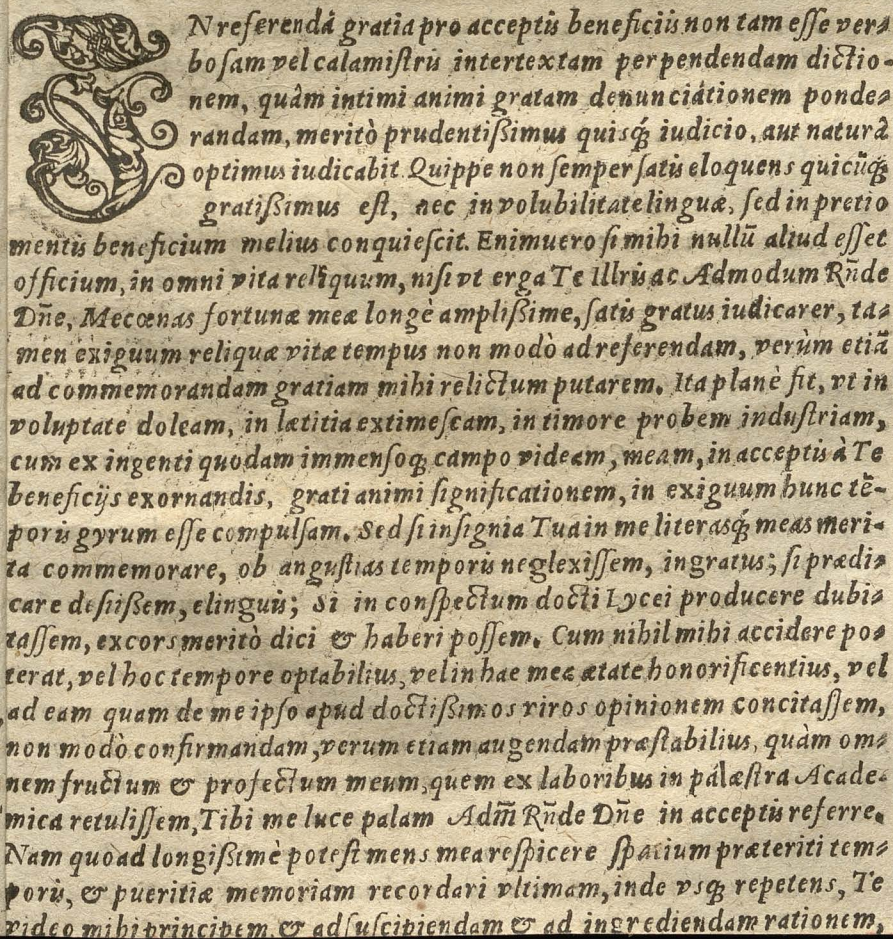 IN referendâ gratia pro acceptis beneficiis non tam esse ver-
bosam vel calamistris intertextam perpendendam dictio-
nem, quàm intimi animi gratam denunciationem ponde-
randam, meritò prudentißimus quisq́; iudicio, aut naturâ
optimus iudicabit. Quippe non semper satis eloquens quicũq́;
gratißimus est, nec in volubilitate linguæ, sed in pretio
mentis beneficium melius conquiescit. Enimuero si mihi nullũ aliud esset
officium, in omni vita reliquum, nisi vt erga Te Illris ac Admodum Rñde
Dñe, Mecœnas fortunæ meæ longè amplißime, satis gratus iudicarer, ta-
men exiguum reliquæ vitæ tempus non modò ad referendam, verùm etiã
ad commemorandam gratiam mihi relictum putarem. Ita planè fit, vt in
voluptate doleam, in lætitia extimescam, in timore probem industriam,
cum ex ingenti quodam immensoq; campo videam, meam, in acceptis à Te
beneficijs exornandis, grati animi significationem, in exiguum hunc tẽ-
poris gyrum esse compulsam. Sed si insignia Tua in me literasq́; meas meri-
ta commemorare, ob angustias temporis neglexissem, ingratus; si prædi-
care desiißem, elinguis; Si in conspectum docti Lycei producere dubi-
tassem, excors meritò dici & haberi possem. Cum nihil mihi accidere po-
terat, vel hoc tempore optabilius, vel in hac mea ætate honorificentius, vel
ad eam quam de me ipso apud doctißimos viros opinionem concitassem,
non modò confirmandam, verum etiam augendam præstabilius, quàm om-
nem fructum & profectum meum, quem ex laboribus in palæstra Acade-
mica retulissem, Tibi me luce palam Adm̃ Rñde Dñe in acceptis referre.
Nam quoad longißimè potest mens mea respicere spatium præteriti tem-
poris, & pueritiæ memoriam recordari vltimam, inde vsq; repetens, Te
video mihi principem & ad suscipiendam & ad ingrediendam rationem,